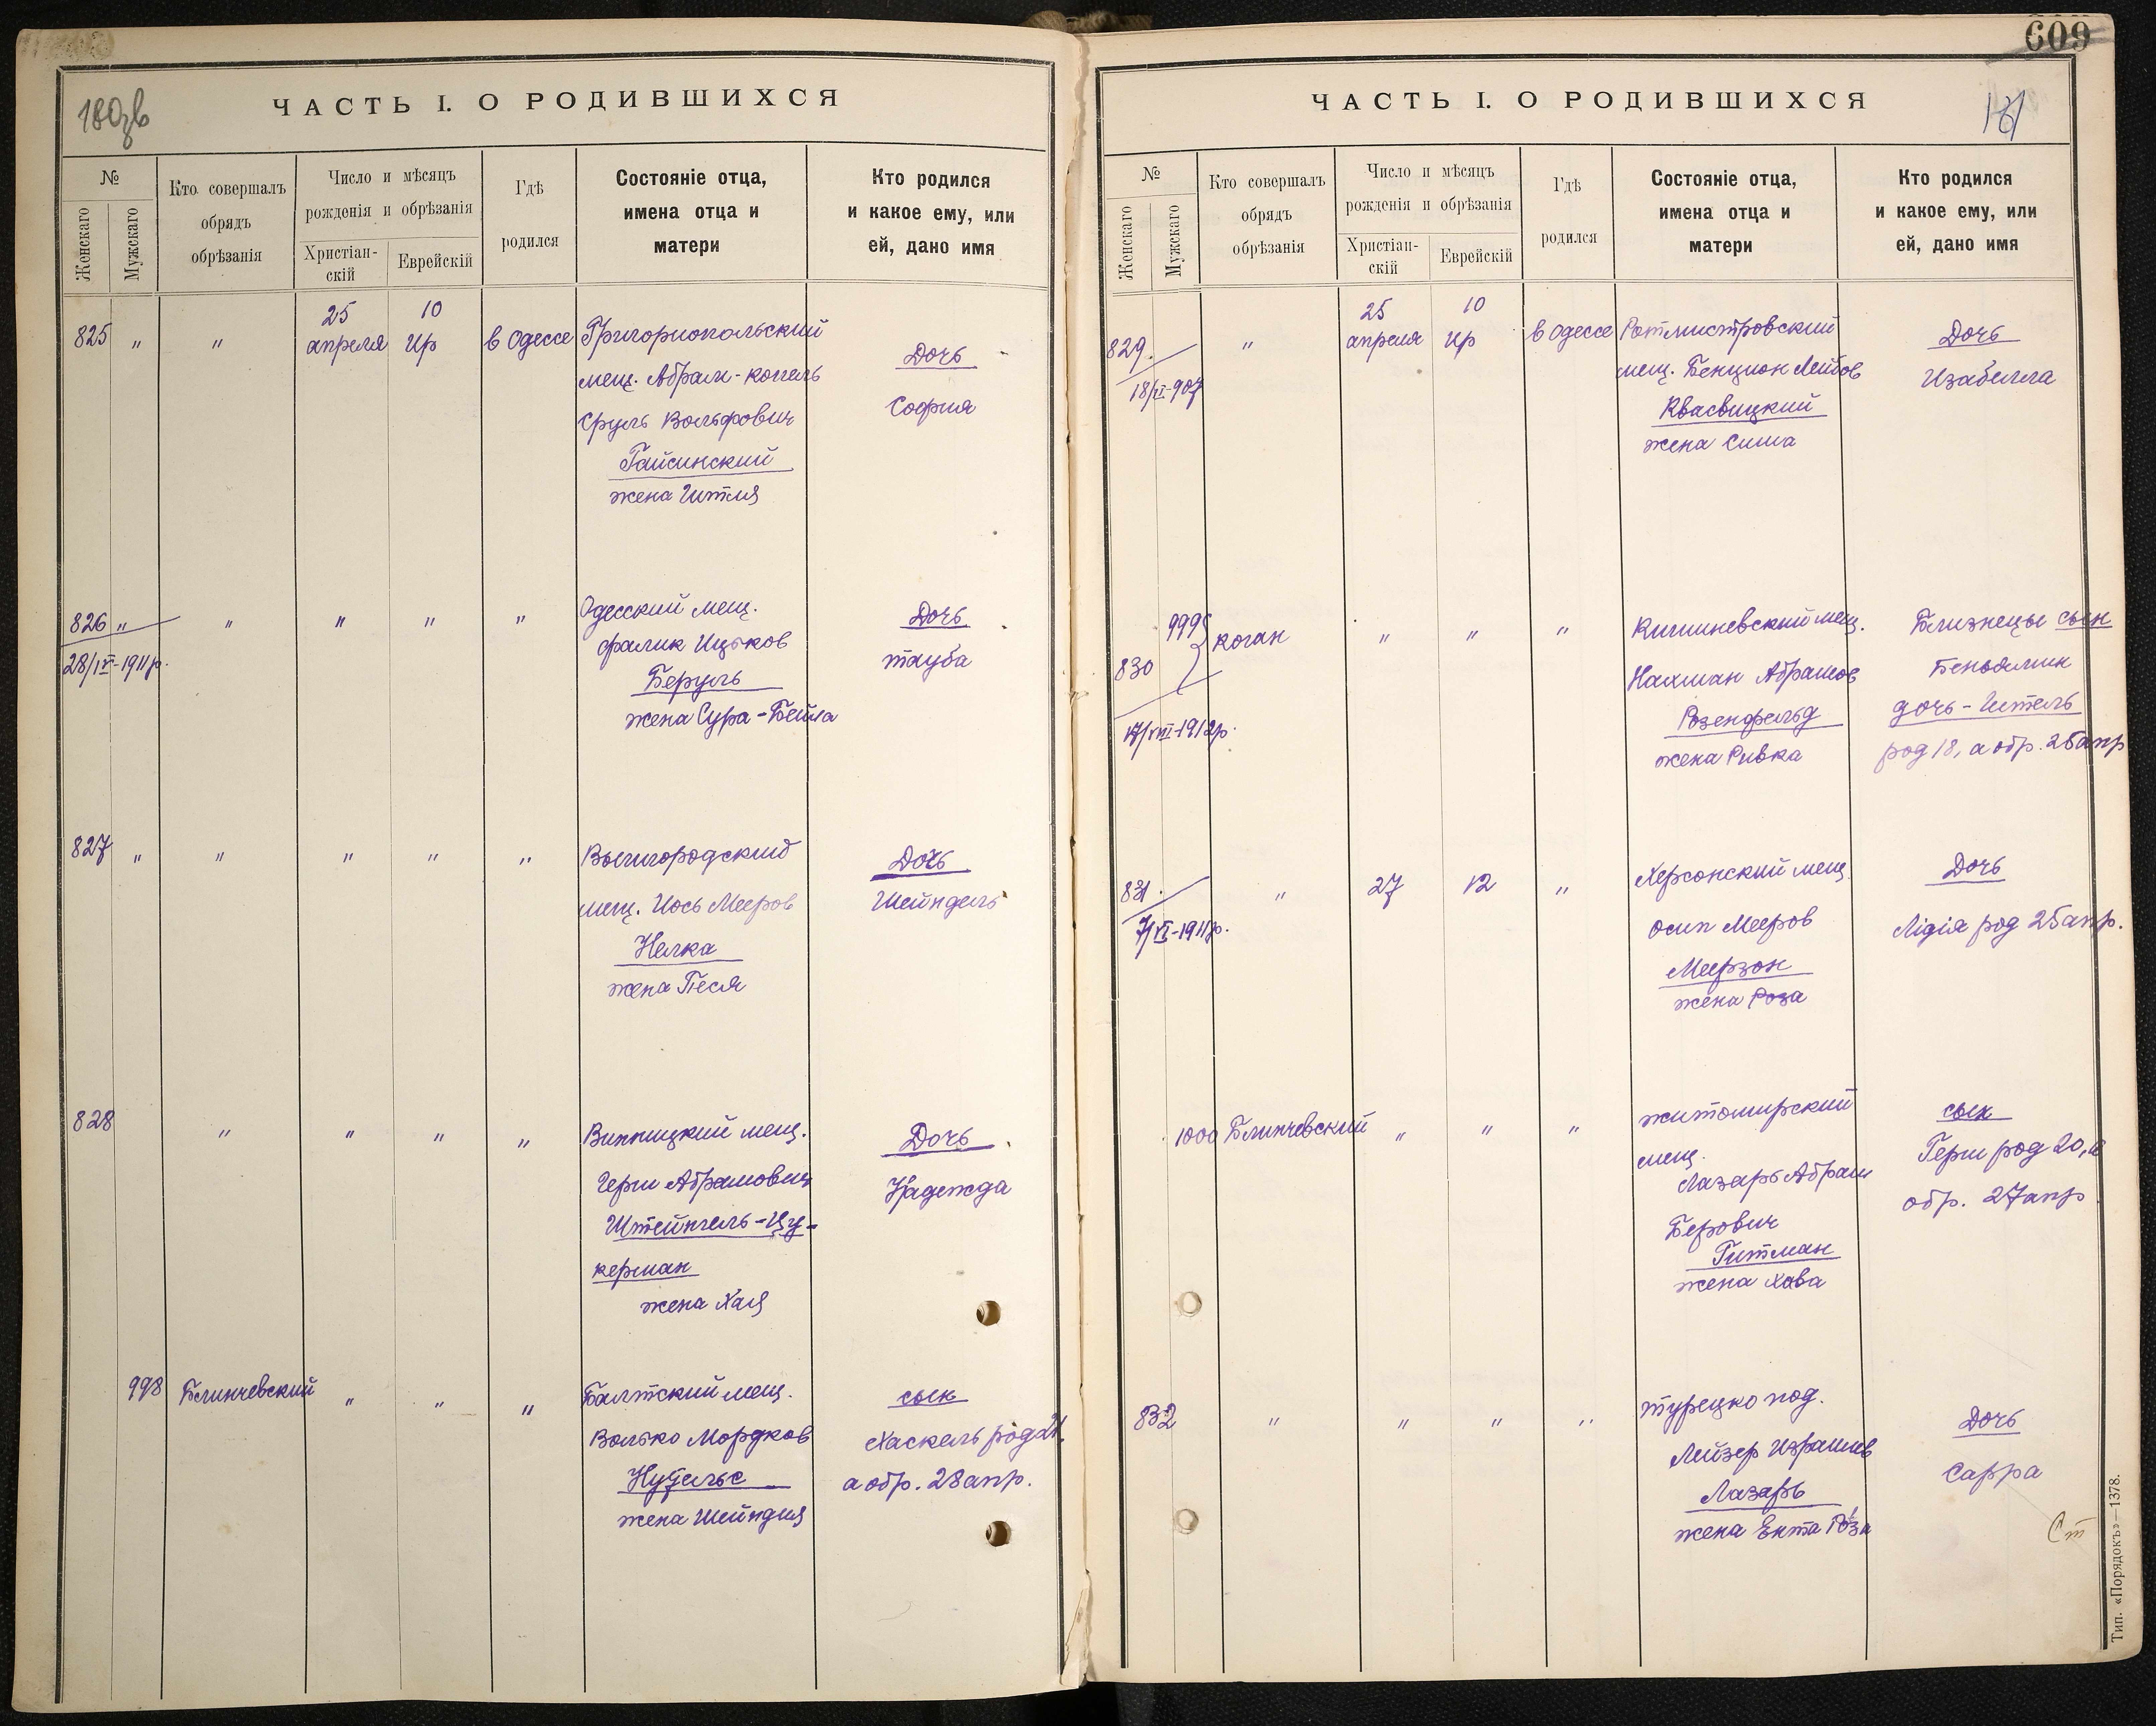 180зв
ЧАСТЬ I. О РОДИВШИХСЯ
№
Женскаго
Мужскаго
Кто совершалъ
обрядъ
обрѣзанія
Число и мѣсяцъ
рожденія и обрѣзанія
Христіан-
скій
Еврейскій
Гдѣ
родился
Состояніе отца,
имена отца и
матери
Кто родился
и какое ему, или
ей, дано имя
825 " "
25
апреля
10
Ир
в Одессе
Григориопольский
мещ. Абрам-Коппель
Сруль Вольфович
Гайсинский
жена Гитля
Дочь
София
826 " " " " "
28/IV-1911г.
Одесский мещ.
Фалик Ицьков
Беруль
жена Сура-Бейла
Дочь
Тауба
827 " " " " "
Вышгородский
мещ. Иось Мееров
Нелка
жена Песя
Дочь
Шейндель
828 " " " "
Винницкий мещ.
Герш Абрамович
Штейнгель-Цу-
керман
жена Хая
Дочь
Надежда
998 Блинчевский " " "
Балтский мещ.
Волько Мордков
Нудельс
жена Шейндля
сын
Хаскель род 21,
а обр. 28 апр.
609
181
ЧАСТЬ I. О РОДИВШИХСЯ
№
Женскаго
Мужскаго
Кто совершалъ
обрядъ
обрѣзанія
Число и мѣсяцъ
рожденія и обрѣзанія
Христіан-
скій
Еврейскій
Гдѣ
родился
Состояніе отца,
имена отца и
матери
Кто родился
и какое ему, или
ей, дано имя
829. "
18/VI-907
25
апреля
10
Ир
в Одессе
Ротмистровский
мещ. Бенцион Лейбов
Квасвицкий
жена Сима
Дочь
Изабелла
999
830
Коган " " "
17/VIII-1912г.
Кишиневский мещ.
Нахман Абрамов
Розенфельд
жена Ривка
Близнецы сын
Беньямин
дочь-Гитель
род 18, а обр. 25 апр
831. " 27 12 "
7/VI-1911г.
Херсонский мещ.
Осип Мееров
Меерзон
жена Роза
Дочь
Лидія род 25 апр.
1000 Блинчевский " " "
Житомирский
мещ.
Лазарь Абрам
Берович
Гитман
жена Хава
сын
Герш род 20, а
обр. 27 апр
832 " " " "
турецко под.
Лейзер Израилев
Лазарь
жена Ента Роза
Дочь
Сарра
Ст
Тип. «Порядокъ»—1378.